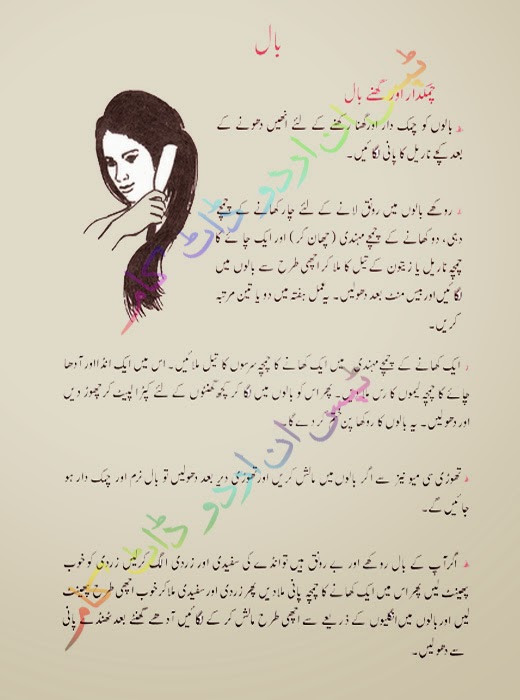 بال
چمکدار اور گھنے بال
بالوں کو چمک دار اور گھنا رکھنے کے لئے انھیں دھونے کے
بعد کچے ناریل کا پانی لگائیں۔
روکھے بالوں میں رونق لانے کے لئے چار کھانے کے چمچے
دہی، دو کھانے کے چمچے مہندی (چھان کر) اور ایک چائے کا
چمچہ ناریل یا زیتون کے تیل کا ملا کر اچھی طرح سے بالوں میں
لگائیں اور بیس منٹ بعد دھولیں۔ یہ عمل ہفتہ میں دو یا تین مرتبہ
کریں۔
ایک کھانے کے چمچے مہندی میں ایک کھانے کا چمچہ سرسوں کا تیل ملائیں۔ اس میں ایک انڈا اور آدھا
چائے کا چمچہ لیموں کا رس ملائیں۔ پھر اس کو بالوں میں لگا کر کچھ گھنٹوں کے لئے کپڑا لپیٹ کر چھوڑ دیں
اور دھولیں۔ یہ بالوں کا روکھا پن ختم کر دے گا۔
تھوڑی سی میونیز سے اگر بالوں میں مالش کریں اور تھوڑی دیر بعد دھولیں تو بال نرم اور چمک دار ہو
جائیں گے۔
اگر آپ کے بال روکھے اور بے رونق ہیں تو انڈے کی سفیدی اور زردی الگ کرلیں زردی کو خوب
پھینٹ لیں پھر اس میں ایک کھانے کا چمچہ پانی ملادیں پھر زردی اور سفیدی ملا کر خوب اچھی طرح پھینٹ
لیں اور بالوں میں انگلیوں کے ذریعے سے اچھی طرح مالش کر کے لگائیں آدھے گھنٹے بعد ٹھنڈے پانی
سے دھولیں۔
ٹپس ان اردو ڈاٹ کامر
ٹپس ان اردو ڈاٹ کامر